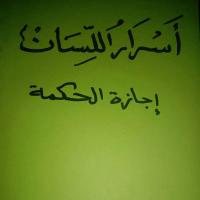 أَسْرَارُ اللِّسَانْ
إجازة الحكمة